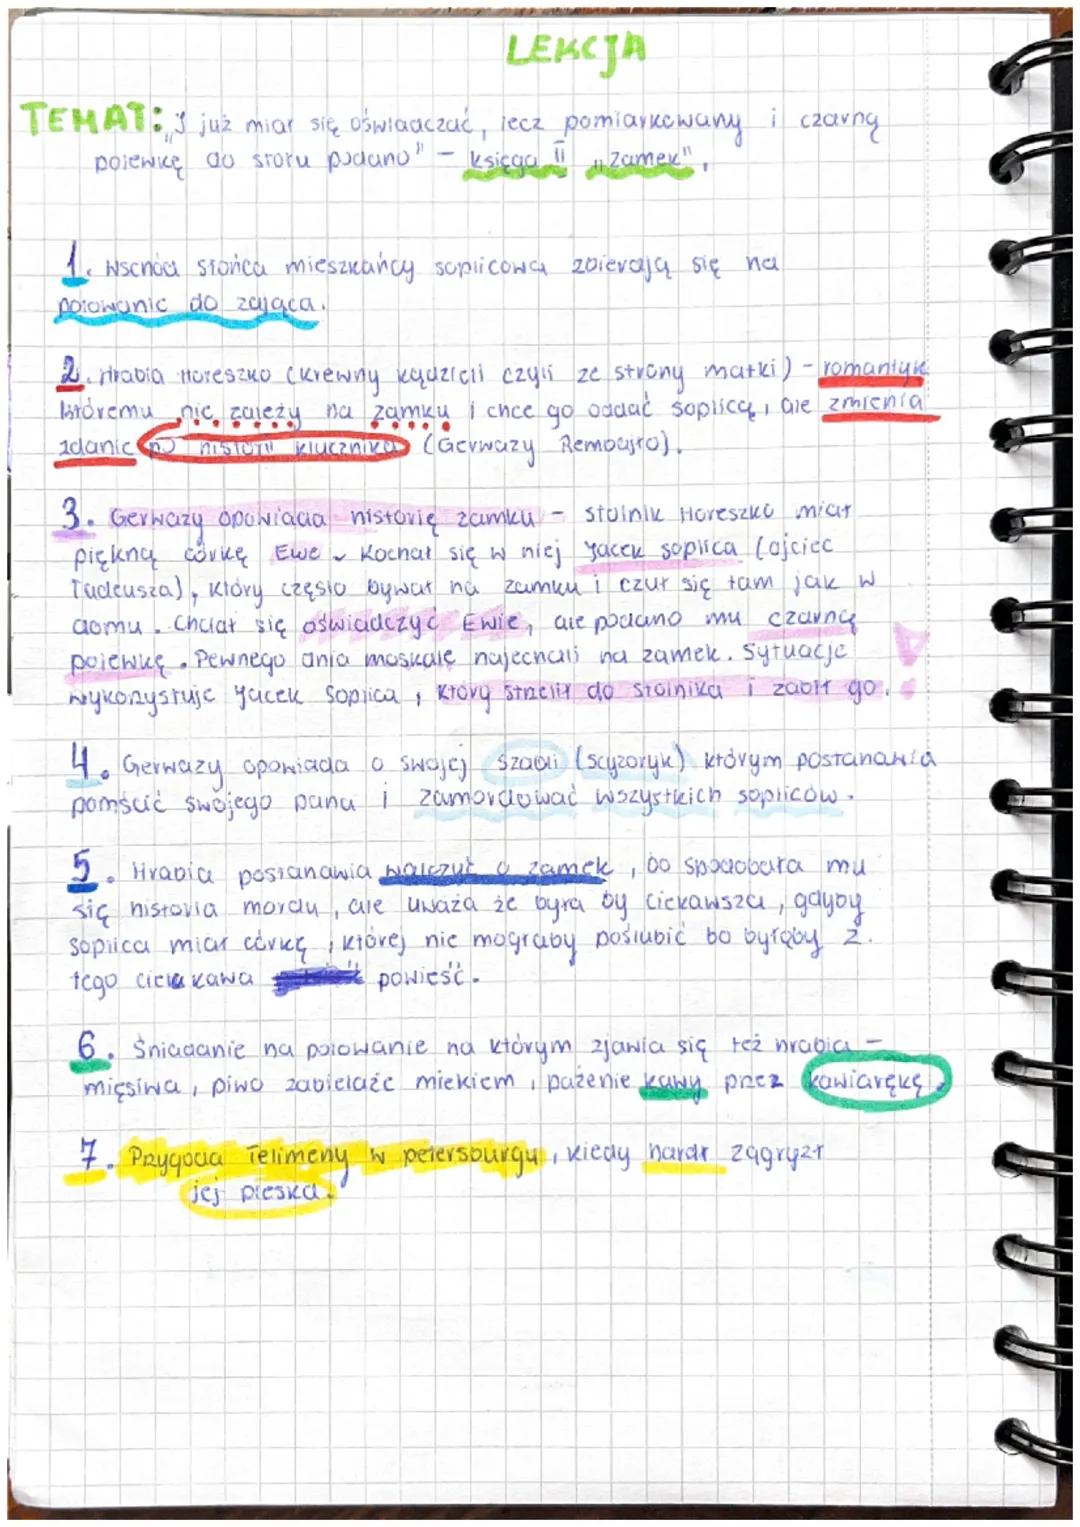 LEKCJA
TEMAT: "I już miał się oświadczać, lecz pomiarkowany i czarną
polewkę do stołu podano" - księga II "Zamek".
1. Wschód słońca mieszkańcy soplicowa zbierają się na
polowanie do zająca.
2. Hrabia Horeszko (krewny kądzieli czyli ze strony matki) - romantyk
któremu nie zależy na zamku i chce go oddać soplicą, ale zmienia
zdanie po historii klucznika (Gerwazy Rembajło).
3. Gerwazy opowiada historię zamku - stolnik Horeszko miał
piękną córkę Ewe. Kochał się w niej Jacek soplica (ojciec
Tadeusza), który często bywał na zamku i czuł się tam jak w
domu. Chciał się oświadczyć Ewie, ale podano mu czarną
polewkę. Pewnego dnia moskale najechali na zamek. Sytuacje
wykorzystuje Jacek Soplica, który strzelił do stolnika i zabił go. !
4. Gerwazy opowiada o swojej szabli (scyzoryk) którym postanawia
pomścić swojego pana i zamordować wszystkich sopliców.
5. Hrabia postanawia walczyć o zamek, bo spodobała mu
się historia mordu, ale uważa że była by ciekawsza, gdyby
soplica miał córkę, której nie mógłaby poślubić bo byłaby z
tego ciekawa powieść.
6. Śniadanie na polowanie na którym zjawia się też hrabia -
mięsiwa, piwo zabielaże mlekiem, pażenie kawy przez kawiarękę.
7. Przygoda Telimeny w petersburgu, kiedy hardr zagryzł
jej pieska.